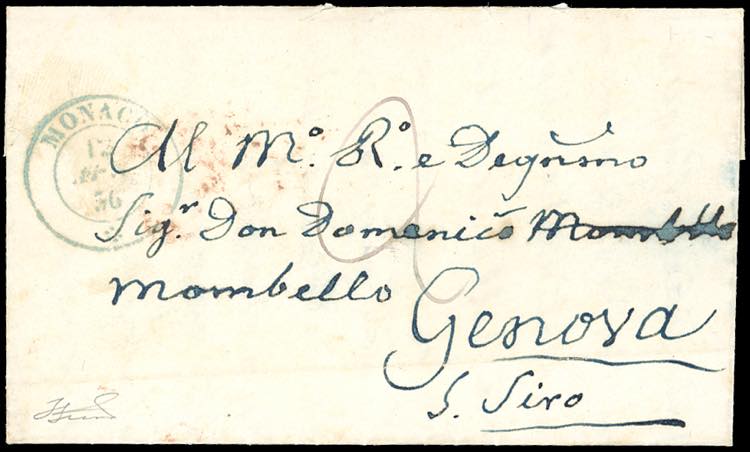 MONACO
12
56
2
Al M.º R.º e Degnmo
Sigr. Don Domenico Mombello
Mombello
Genova
S. Siro